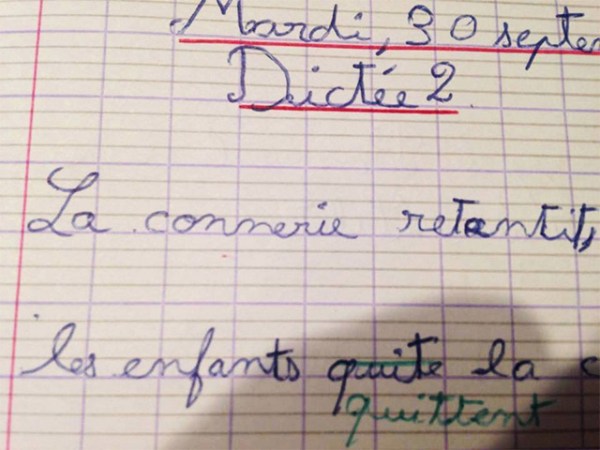 Mardi, 30 septe
Dictée 2
La connerie retentit,
les enfants quite la c
quittent